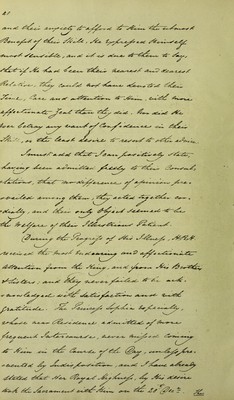 and their anxiety to afford to Him the utmost
Benefit of their Skill. He expressed Himself
most sensible, and it is due to them to say,
that if He had been their nearest and dearest
Relation, they could not have devoted their
Time, Care and attention to Him, with more
affectionate Zeal than they did. Nor did He
ever betray any want of Confidence in their
Skill, or the least desire to resort to other advice.
I must add that I can positively state,
having been admitted freely to their Consul-
tations, that no difference of opinion pre-
vailed among them, they acted together cor-
dially, and their only Object seemed to be
the Welfare of their Illustrious Patient.
During the Progress of His Illness, H.R.H.
received the most endearing and affectionate
attention from the King, and from His Brothers
& Sisters, and they never failed to be ack-
nowledged with satisfaction and with
gratitude. The Princess Sophia especially,
whose near Residence admitted of more
frequent Intercourse, never missed coming
to Him in the Course of the Day, unless pre-
vented by Indisposition, and I have already
stated that Her Royal Highness, by His desire
took the Sacrament with Him on the Decr.